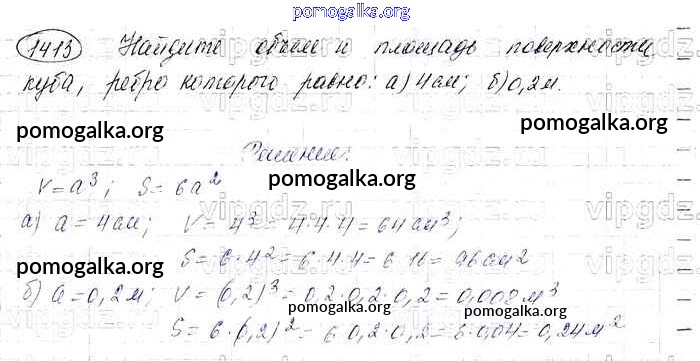 pomogalka.org
1413 Найдите объем и площадь поверхности
куба, ребро которого равно: а) 4см; б) 0,2м.
pomogalka.org pomogalka.org
Решение:
V=a³; S=6a²
pomogalka.org
а) a=4см; V=4³=4·4·4=64см³;
S=6·4²=6·4·4=6·16=96см²
pomogalka.org
б) a=0,2м; V=(0,2)³=0,2·0,2·0,2=0,008м³
pomogalka.org
S=6·(0,2)²=6·0,2·0,2=6·0,04=0,24м²